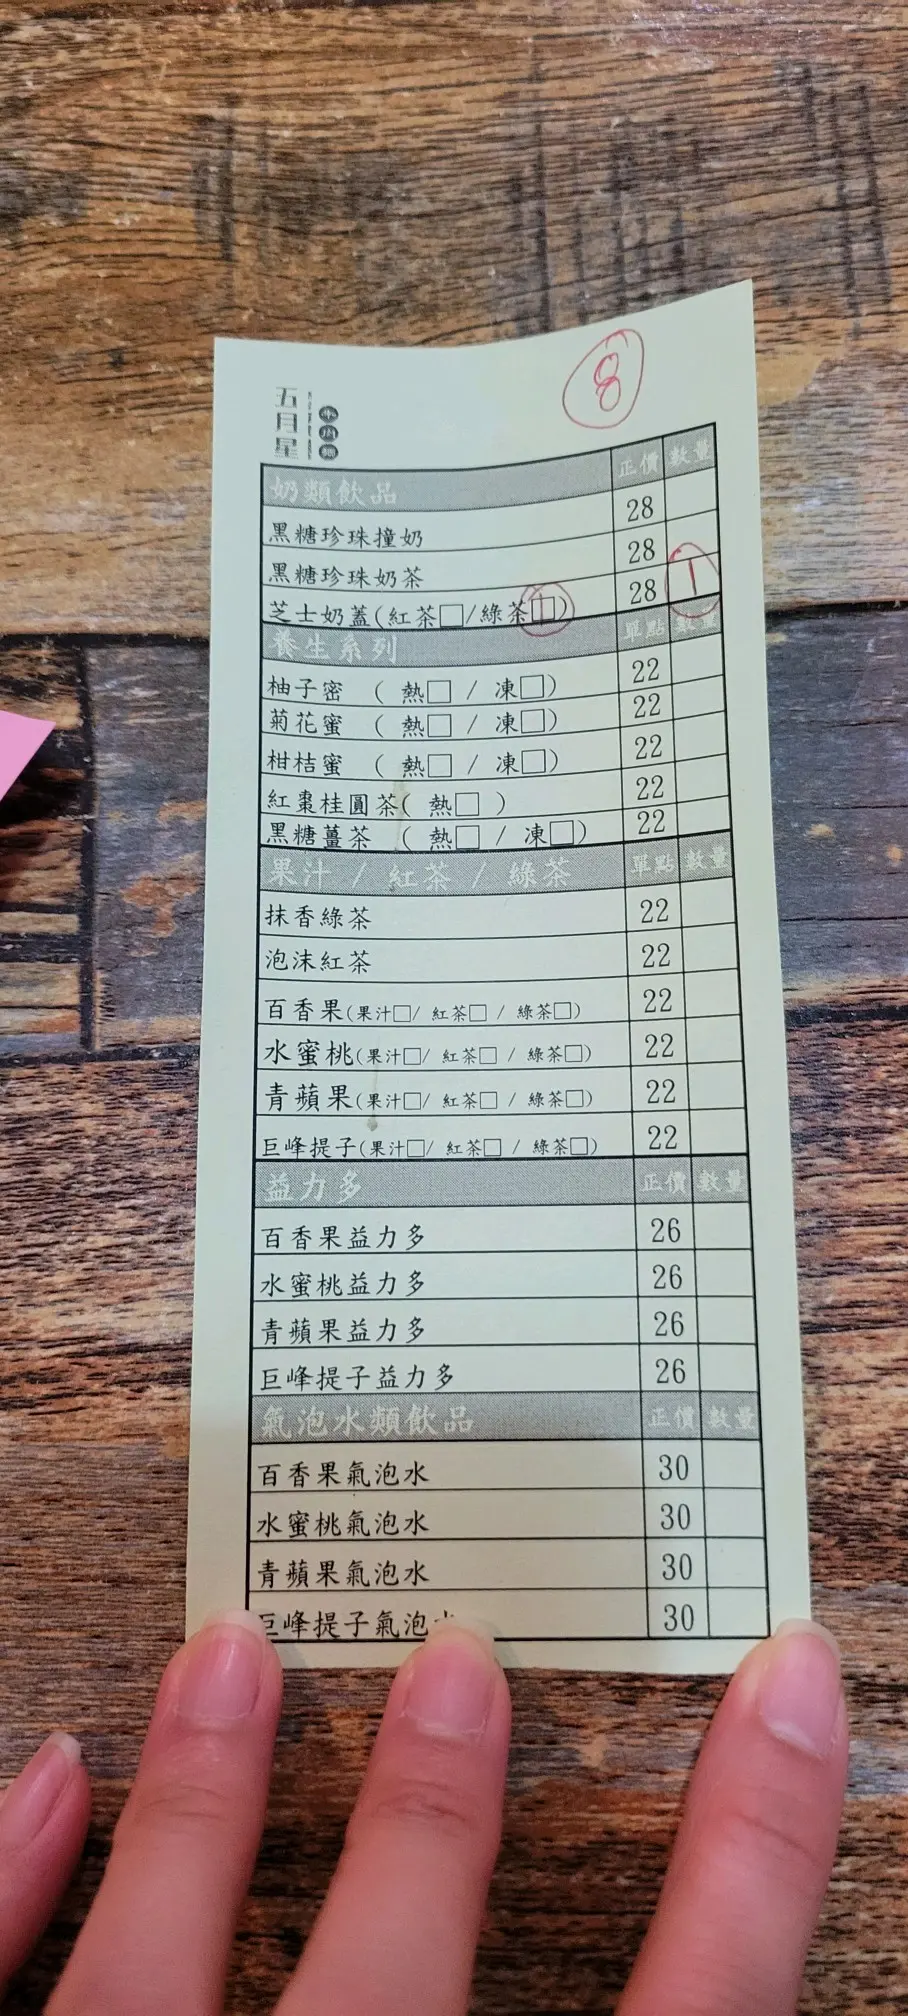 8
五月星
奶類飲品 正價 數量
黑糖珍珠撞奶 28
黑糖珍珠奶茶 28
芝士奶蓋(紅茶□/綠茶□) 28 1
養生系列 單點 數量
柚子密 ( 熱□ / 凍□) 22
菊花蜜 ( 熱□ / 凍□) 22
柑桔蜜 ( 熱□ / 凍□) 22
紅棗桂圓茶( 熱□ ) 22
黑糖薑茶 ( 熱□ / 凍□) 22
果汁 / 紅茶 / 綠茶 單點 數量
抹香綠茶 22
泡沫紅茶 22
百香果(果汁□/ 紅茶□ / 綠茶□) 22
水蜜桃(果汁□/ 紅茶□ / 綠茶□) 22
青蘋果(果汁□/ 紅茶□ / 綠茶□) 22
巨峰提子(果汁□/ 紅茶□ / 綠茶□) 22
益力多 正價 數量
百香果益力多 26
水蜜桃益力多 26
青蘋果益力多 26
巨峰提子益力多 26
氣泡水類飲品 正價 數量
百香果氣泡水 30
水蜜桃氣泡水 30
青蘋果氣泡水 30
巨峰提子氣泡水 30